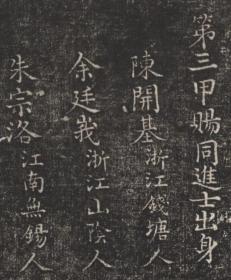 第三甲賜同進士出身
陳開基浙江錢塘人
余廷㦲浙江山陰人
朱宗洛江南無錫人